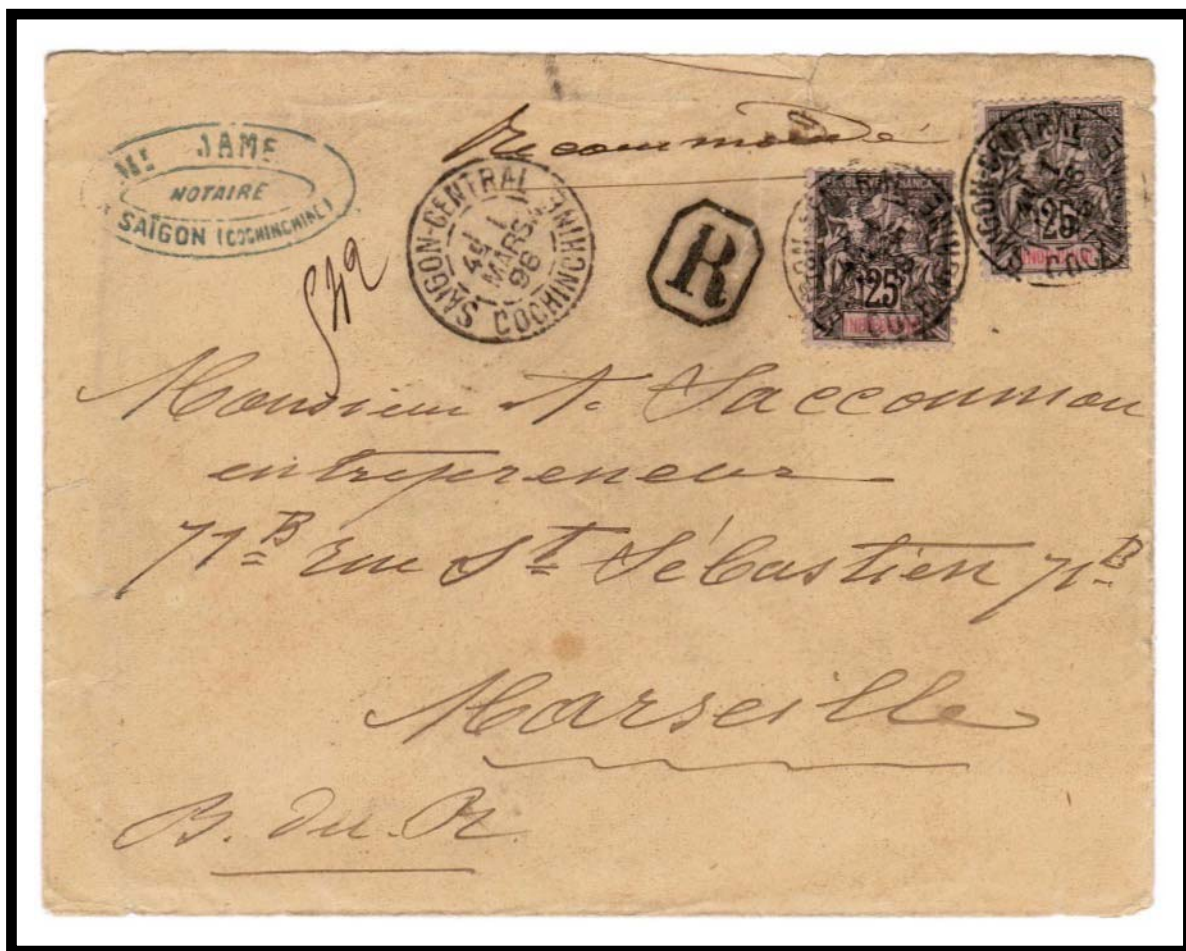 Mᵉ JAME
NOTAIRE
SAÏGON (COCHINCHINE)
Recommandé
SAIGON-CENTRAL
1
4ᴱ
MARS
96
COCHINCHINE
R
25
INDO-CHINE
SAIGON-CENTRAL
25
INDO-CHINE
Monsieur A. Saccouman
entrepreneur
71ᴮ rue Sᵗ Sébastien 71ᴮ
Marseille
B. du R.